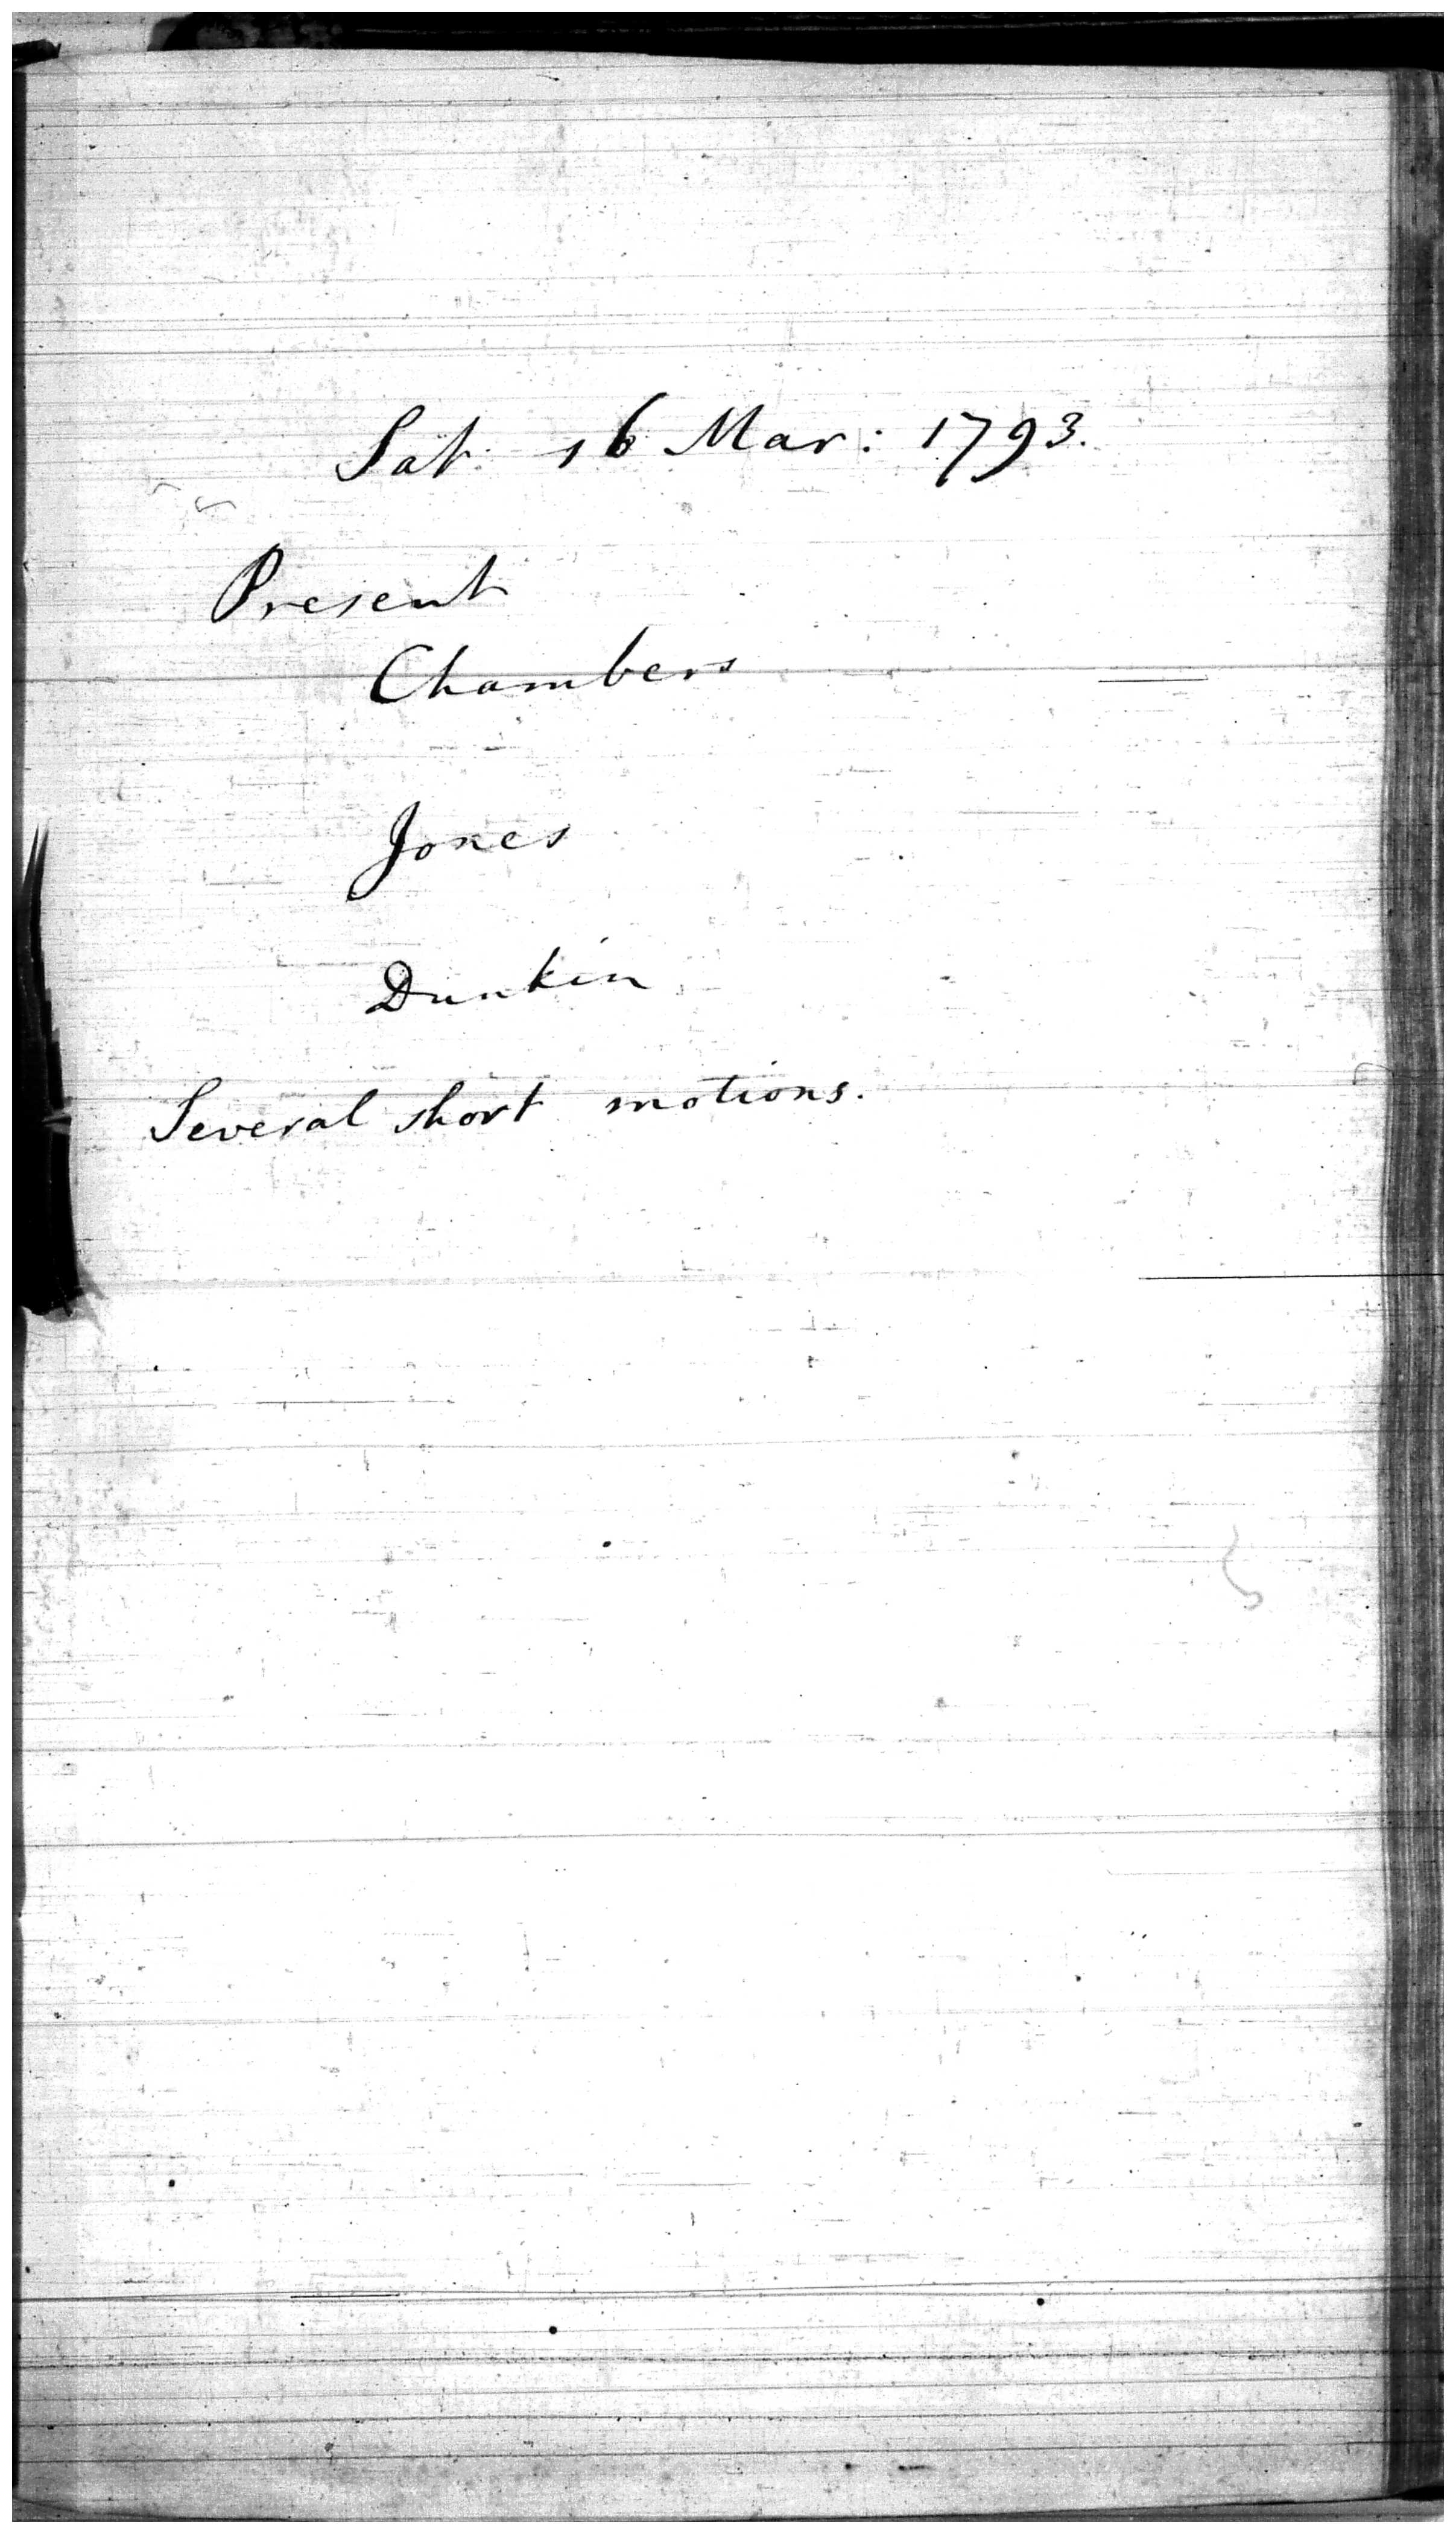 Sat. 16 Mar: 1793.
Present
Chambers
Jones
Dunkin
Several short motions.